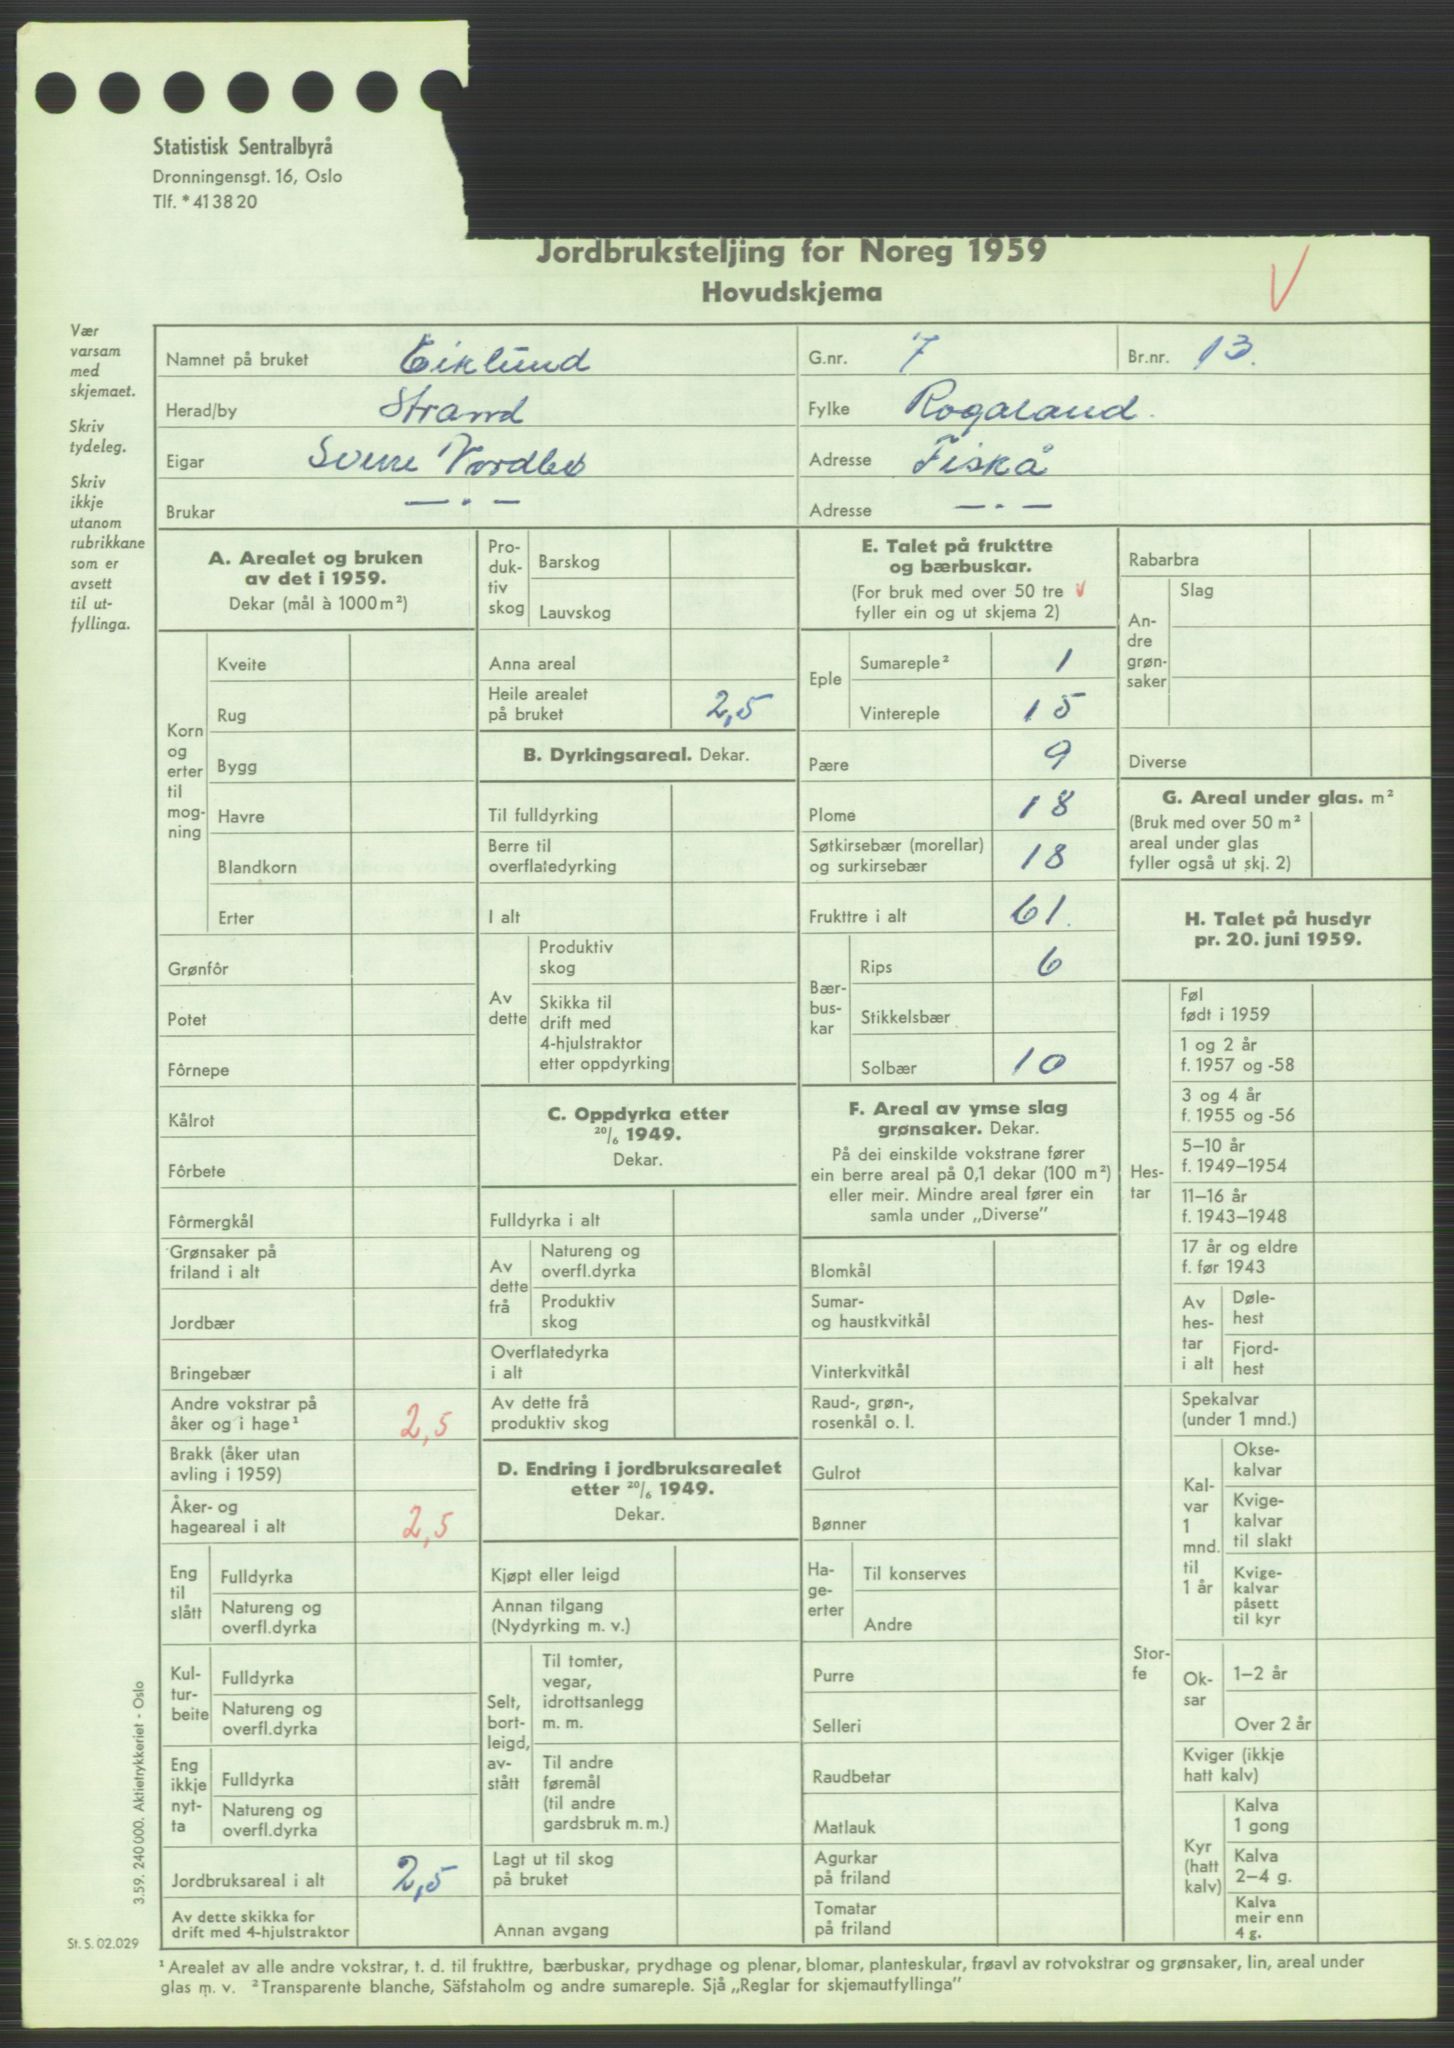 Statistisk Sentralbyrå
Dronningensgt. 16, Oslo
Tlf. * 41 38 20
Jordbruksteljing for Noreg 1959
Hovudskjema
V
Vær
varsam
med
skjemaet.
Skriv
tydeleg.
Skriv
ikkje
utanom
rubrikkane
som er
avsett
til ut-
fyllinga.
Namnet på bruket Eiklund G.nr. 7 Br.nr. 13.
Herad/by Strand Fylke Rogaland.
Eigar Sverre Nordbø Adresse Fiskå
Brukar — · — Adresse — · —
A. Arealet og bruken
av det i 1959.
Dekar (mål à 1000 m²)
Korn
og
erter
til
mog-
ning
Kveite
Rug
Bygg
Havre
Blandkorn
Erter
Grønfôr
Potet
Fôrnepe
Kålrot
Fôrbete
Fôrmergkål
Grønsaker på
friland i alt
Jordbær
Bringebær
Andre vokstrar på
åker og i hage¹ 2,5
Brakk (åker utan
avling i 1959)
Åker- og
hageareal i alt 2,5
Eng
til
slått
Fulldyrka
Natureng og
overfl.dyrka
Kul-
tur-
beite
Fulldyrka
Natureng og
overfl.dyrka
Eng
ikkje
nyt-
ta
Fulldyrka
Natureng og
overfl.dyrka
Jordbruksareal i alt 2,5
Av dette skikka for
drift med 4-hjulstraktor
Pro-
duk-
tiv
skog
Barskog
Lauvskog
Anna areal
Heile arealet
på bruket 2,5
B. Dyrkingsareal. Dekar.
Til fulldyrking
Berre til
overflatedyrking
I alt
Av
dette
Produktiv
skog
Skikka til
drift med
4-hjulstraktor
etter oppdyrking
C. Oppdyrka etter
20/6 1949.
Dekar.
Fulldyrka i alt
Av
dette
frå
Natureng og
overfl.dyrka
Produktiv
skog
Overflatedyrka
i alt
Av dette frå
produktiv skog
D. Endring i jordbruksarealet
etter 20/6 1949.
Dekar.
Kjøpt eller leigd
Annan tilgang
(Nydyrking m. v.)
Selt,
bort-
leigd,
av-
stått
Til tomter,
vegar,
idrottsanlegg
m. m.
Til andre
føremål
(til andre
gardsbruk m. m.)
Lagt ut til skog
på bruket
Annan avgang
E. Talet på frukttre
og bærbuskar.
(For bruk med over 50 tre V
fyller ein og ut skjema 2)
Eple
Sumareple² 1
Vintereple 15
Pære 9
Plome 18
Søtkirsebær (morellar)
og surkirsebær 18
Frukttre i alt 61.
Bær-
bus-
kar
Rips 6
Stikkelsbær
Solbær 10
F. Areal av ymse slag
grønsaker. Dekar.
På dei einskilde vokstrane fører
ein berre areal på 0,1 dekar (100 m²)
eller meir. Mindre areal fører ein
samla under „Diverse”
Blomkål
Sumar-
og haustkvitkål
Vinterkvitkål
Raud-, grøn-,
rosenkål o. l.
Gulrot
Bønner
Ha-
ge-
erter
Til konserves
Andre
Purre
Selleri
Raudbetar
Matlauk
Agurkar
på friland
Tomatar
på friland
Rabarbra
An-
dre
grøn-
saker
Slag
Diverse
G. Areal under glas. m²
(Bruk med over 50 m²
areal under glas
fyller også ut skj. 2)
H. Talet på husdyr
pr. 20. juni 1959.
Hes-
tar
Føl
født i 1959
1 og 2 år
f. 1957 og -58
3 og 4 år
f. 1955 og -56
5–10 år
f. 1949–1954
11–16 år
f. 1943–1948
17 år og eldre
f. før 1943
Av
hes-
tar
i alt
Døle-
hest
Fjord-
hest
Stor-
fe
Spekalvar
(under 1 mnd.)
Kal-
var
1
mnd.
til
1 år
Okse-
kalvar
Kvige-
kalvar
til slakt
Kvige-
kalvar
påsett
til kyr
Ok-
sar
1–2 år
Over 2 år
Kviger (ikkje
hatt kalv)
Kyr
(hatt
kalv)
Kalva
1 gong
Kalva
2–4 g.
Kalva
meir enn
4 g.
3.59. 240 000. Aktietrykkeriet - Oslo
St. S. 02.029
¹ Arealet av alle andre vokstrar, t. d. til frukttre, bærbuskar, prydhage og plenar, blomar, planteskular, frøavl av rotvokstrar og grønsaker, lin, areal under
glas m. v. ² Transparente blanche, Säfstaholm og andre sumareple. Sjå „Reglar for skjemautfyllinga”